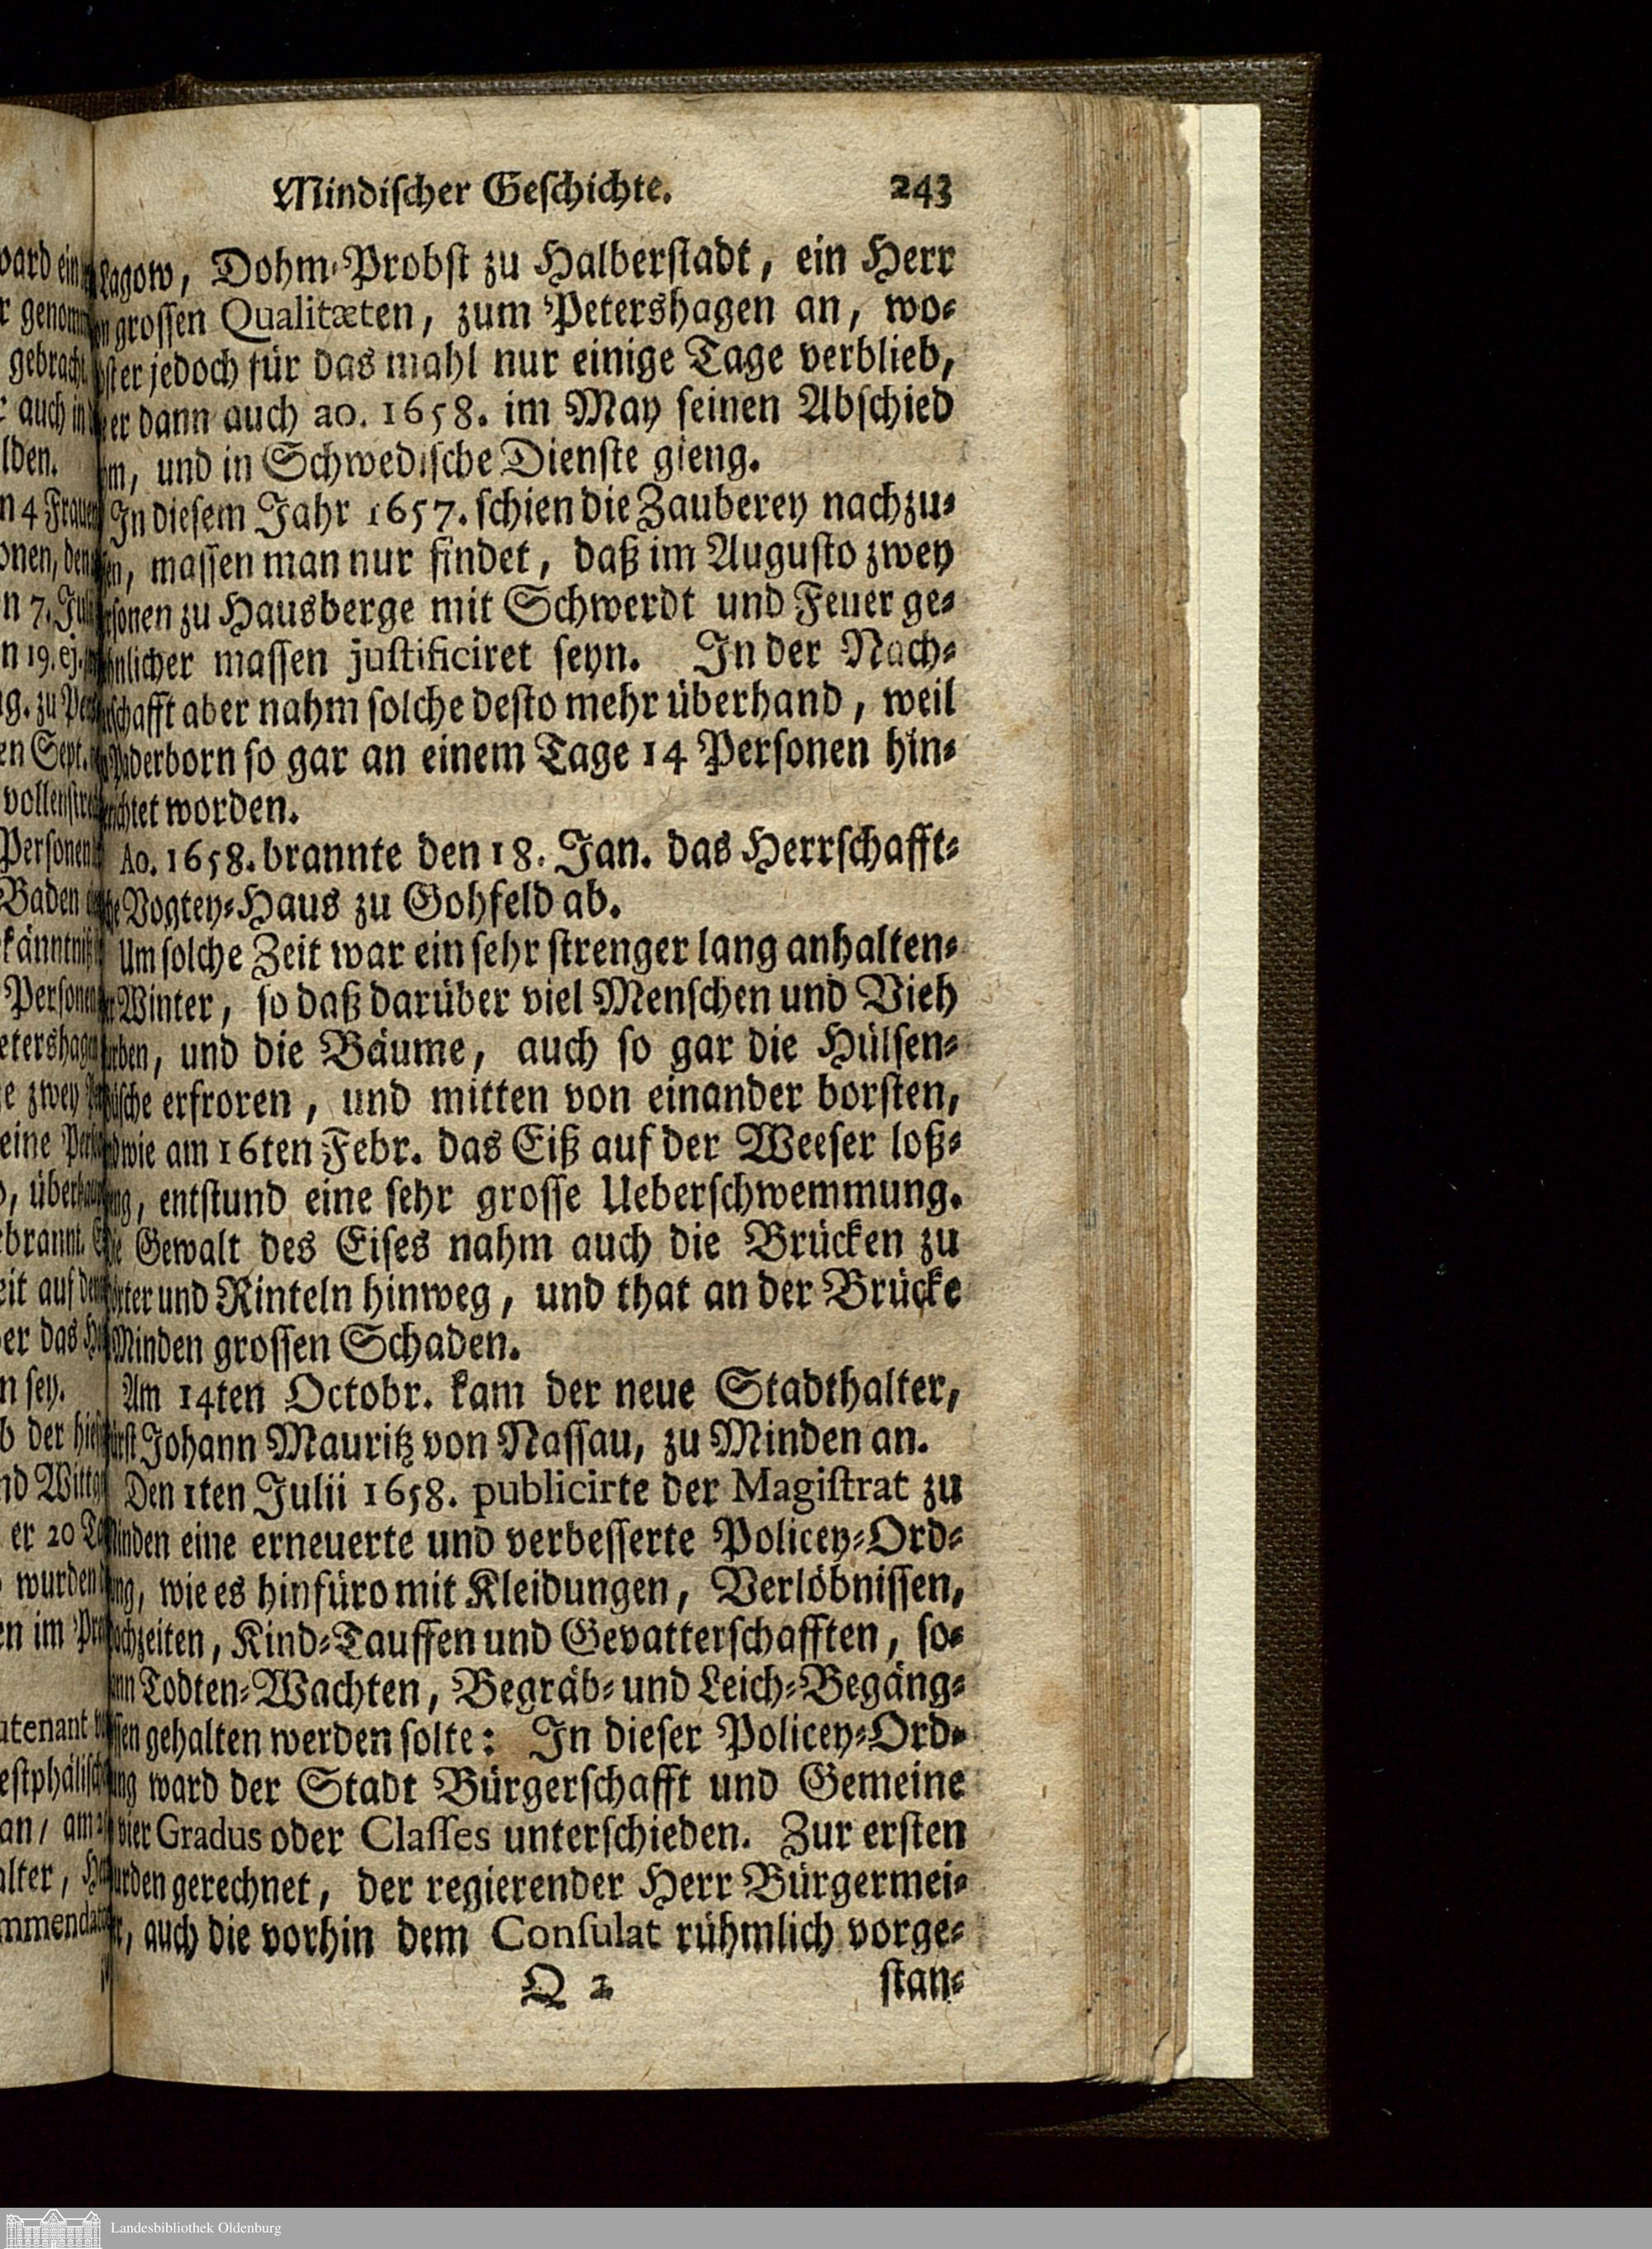 Mindiſcher Geſchichte. 243
Lagow, Dohm-Probſt zu Halberſtadt, ein Herr
groſſen Qualitæten, zum Petershagen an, wo-
jedoch für das mahl nur einige Tage verblieb,
er dann auch ao. 1658. im May ſeinen Abſchied
und in Schwediſche Dienſte gieng.
In dieſem Jahr 1657. ſchien die Zauberey nachzu-
maſſen man nur findet, daß im Auguſto zwey
zu Hausberge mit Schwerdt und Feuer ge-
maſſen juſtificiret ſeyn. In der Nach-
aber nahm ſolche deſto mehr überhand, weil
Paderborn ſo gar an einem Tage 14 Perſonen hin-
worden.
Ao. 1658. brannte den 18. Jan. das Herrſchafft-
Vogtey-Haus zu Gohfeld ab.
Um ſolche Zeit war ein ſehr ſtrenger lang anhalten-
Winter, ſo daß darüber viel Menſchen und Vieh
und die Bäume, auch ſo gar die Hülſen-
erfroren, und mitten von einander borſten,
wie am 16ten Febr. das Eiß auf der Weeſer loß-
entſtund eine ſehr groſſe Ueberſchwemmung.
Die Gewalt des Eiſes nahm auch die Brücken zu
und Rinteln hinweg, und that an der Brücke
Minden groſſen Schaden.
Am 14ten Octobr. kam der neue Stadthalter,
Johann Mauritz von Naſſau, zu Minden an.
Den 1ten Julii 1658. publicirte der Magiſtrat zu
Minden eine erneuerte und verbeſſerte Policey-Ord-
wie es hinfüro mit Kleidungen, Verlöbniſſen,
Kind-Tauffen und Gevatterſchafften, ſo-
Todten-Wachten, Begräb- und Leich-Begäng-
gehalten werden ſolte: In dieſer Policey-Ord-
ward der Stadt Bürgerſchafft und Gemeine
vier Gradus oder Claſſes unterſchieden. Zur erſten
gerechnet, der regierender Herr Bürgermei-
auch die vorhin dem Conſulat rühmlich vorge-
Q 2 ſtan-
Landesbibliothek Oldenburg